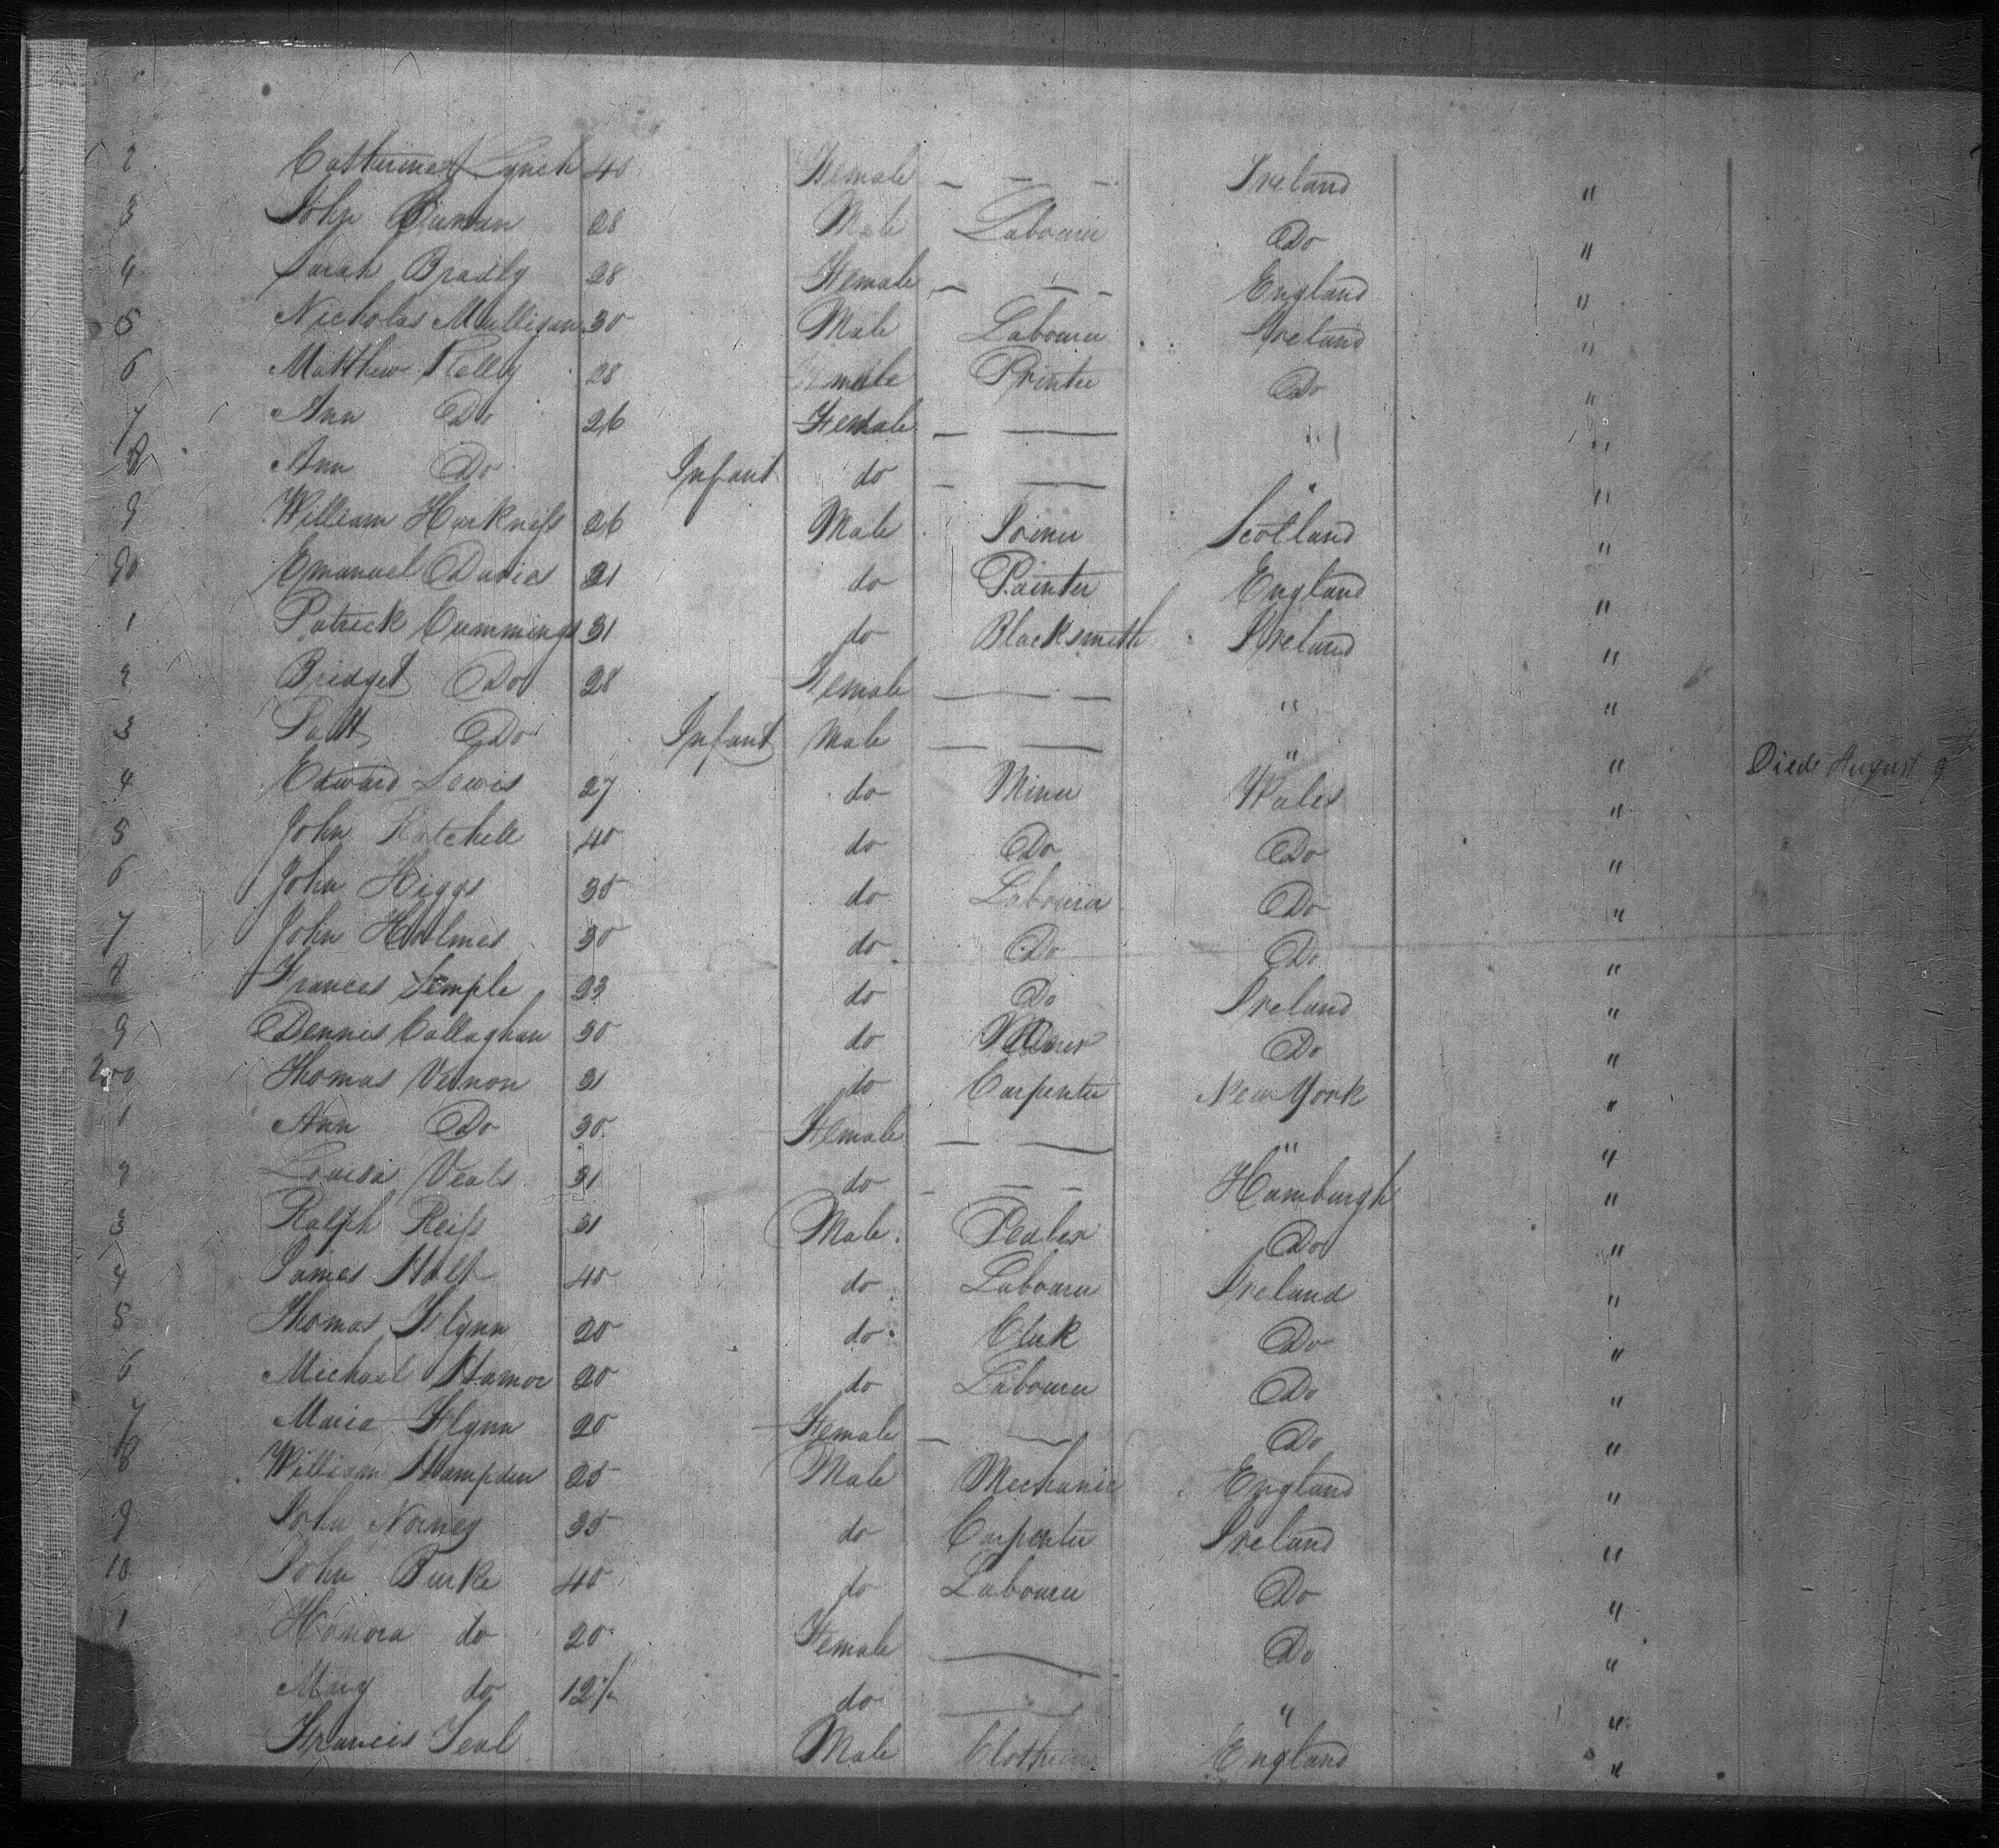 2 Catherine Lynch 40 Female — — — Ireland "
3 John 28 Male Labourer Do "
4 Sarah Bradly 28 Female — — — England "
5 Nicholas Mulligan 30 Male Labourer Ireland "
6 Matthew Kelly 28 Male Printer Do "
7 Ann Do 26 Female — — " "
8 Ann Do Infant do — — " "
9 William Harkness 26 Male Joiner Scotland "
90 Emanuel Davies 21 do Painter England "
1 Patrick Cummings 31 do Blacksmith Ireland "
2 Bridget Do 28 Female — — " "
3 Patt Do Infant Male — — " " Died August 9
4 Edward Lewis 27 do Miner Wales "
5 John 40 do Do Do "
6 John Higgs 35 do Labourer Do "
7 John Holmes 30 do Do Do "
8 Frances Semple 23 do Do Ireland "
9 Dennis Callaghan 30 do Miner Do "
200 Thomas Vernon 31 do Carpenter New York "
1 Ann Do 30 Female — — " "
2 Louisa Veals 31 do — — — Hamburgh "
3 Ralph Reiss 31 Male Pedler Do "
4 James Holt 40 do Labourer Ireland "
5 Thomas Flynn 20 do Clerk Do "
6 Michael 20 do Labourer Do "
7 Maria Flynn 20 Female — — Do "
8 William Hampden 25 Male Mechanic England "
9 John 35 do Carpenter Ireland "
10 John Burke 40 do Labourer Do "
1 Honora do 20 Female — Do "
Mary do 12 do — " "
Francis Male England "